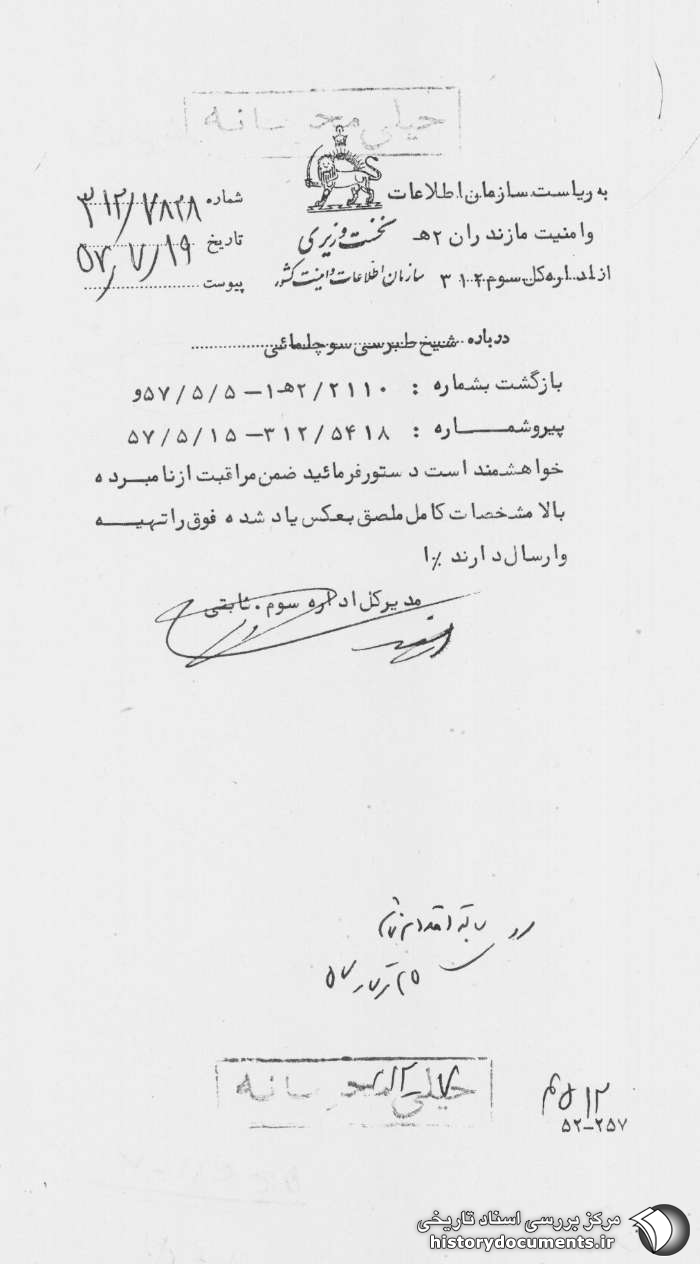 خیلی محرمانه
به ریاست سازمان اطلاعات
و امنیت مازندران ۲هـ
از اداره کل سوم ۳۱۲
نخست وزیری
سازمان اطلاعات و امنیت کشور
شماره ۳۱۲/۷۸۲۸
تاریخ ۵۷/۷/۱۹
پیوست
درباره شیخ طبرسی سوچلمائی
بازگشت بشماره : ۲/۲۱۱۰هـ۱ – ۵۷/۵/۵ و
پیرو شمـــاره : ۳۱۲/۵۴۱۸ – ۵۷/۵/۱۵
خواهشمند است دستور فرمائید ضمن مراقبت از نامبرده
بالا مشخصات کامل ملصق بعکس یاد شده فوق را تهیـــه
و ارسال دارند ٪ا
مدیر کل اداره سوم . ثابتی
خیلی محرمانه
۵۲–۲۵۷
مرکز بررسی اسناد تاریخی
historydocuments.ir